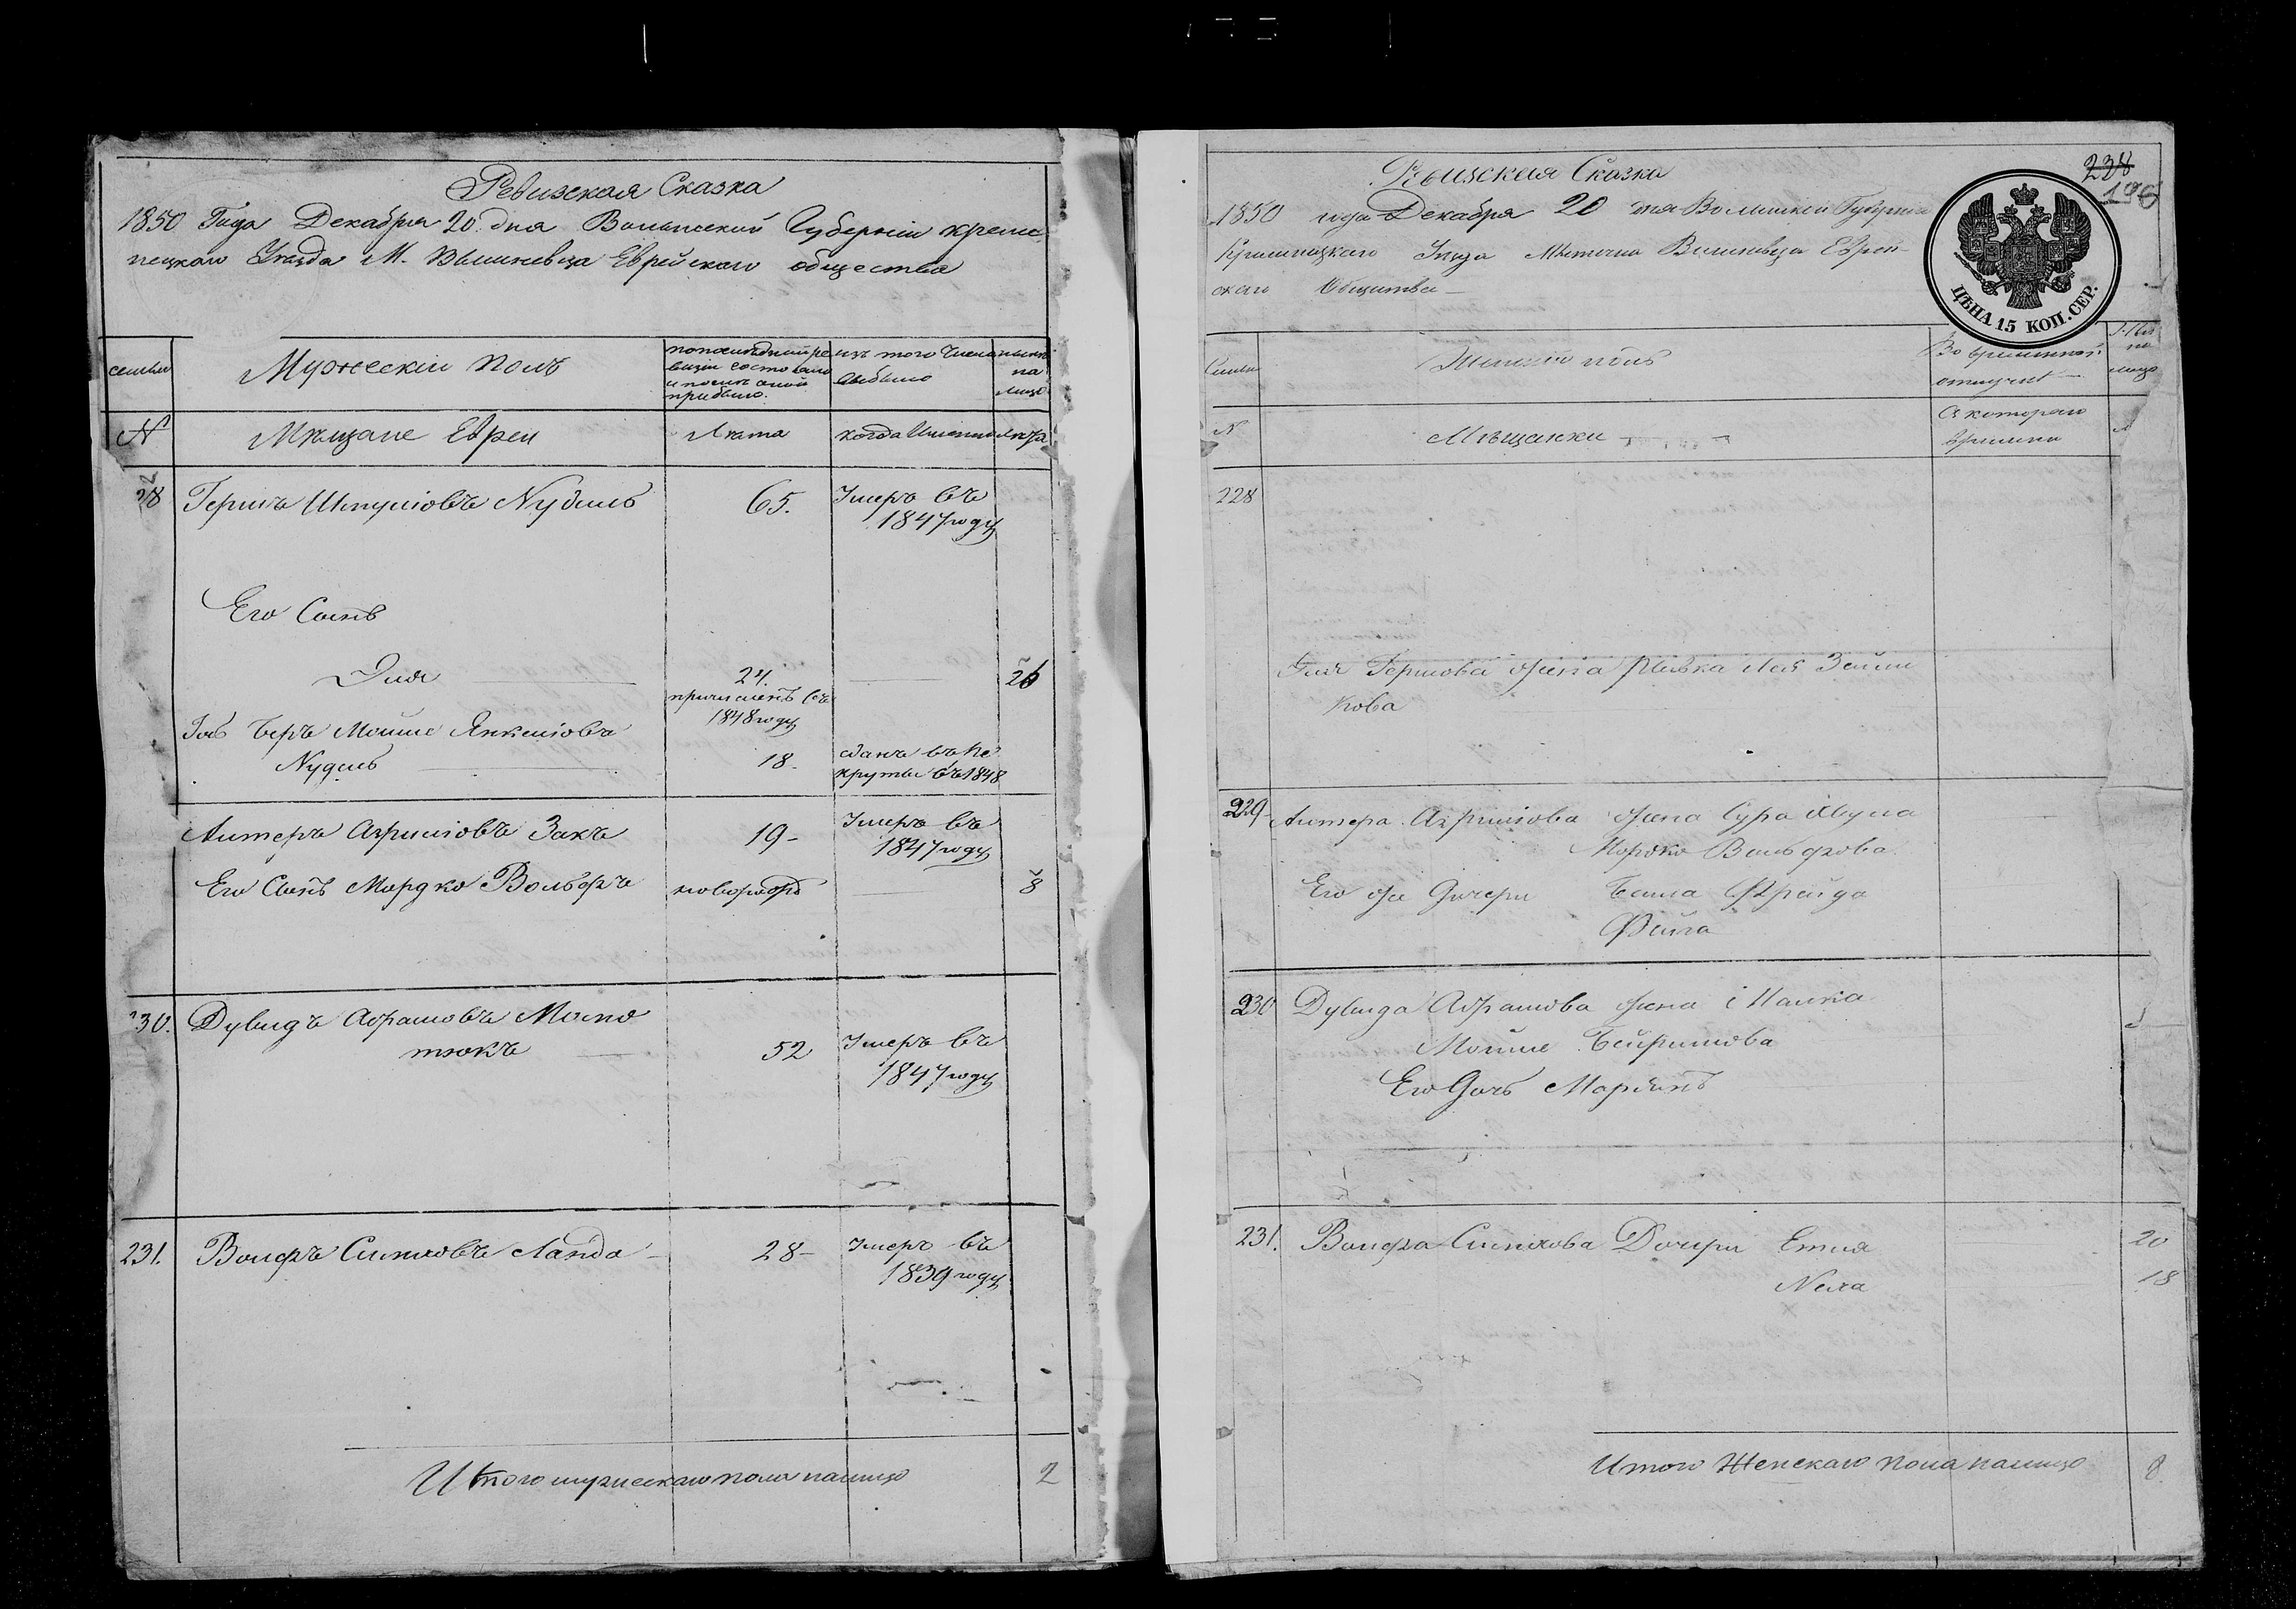 Ревизская Сказка
1850 Года Декабря 20. дня Волынской Губернии Креме
нецкаго Уезда М. Вышневца Еврейскаго общества
семьи
Мужескій Полъ
по последней ре
визіи состояло
и после оной
прибыло.
изъ того Числа
выбыло
ныне
на
лицо
№
Мещане Евреи
Лета
когда Именно
Лета
28
Гершъ Шмуліовъ Nудель
65.
Умеръ въ
1847 году
Его Сынъ
Эля
24.
26
причисленъ въ
1848 году
Беръ Мошие Янкеліовъ
Nудель
18
сданъ въ Ре
круты въ 1848
Алтеръ Азриліовъ Закъ
19
Умеръ въ
1847 году
Его Сынъ Мордко Вольфъ
новорожд
8
30.
Дувидъ Абрамовъ Мосно
тюкъ
52
Умеръ въ
1847 году
231.
Волфъ Симховъ Ланда
28
Умеръ въ
1839 году
Итого мужескаго пола налицо
2
Ревизская Сказка
238
196
1850 года Декабря 20 дня Волынской Губерніи
Кременецкаго Уезда Местечка Вишневца Еврей
скаго Общества
ЦѢНА 15 КОП. СЕР.
Семьи
Женскій полъ
Во временной
отлучке
на
лицо
№
Мещанки
Съ котораго
времени
228
Эля Гершова жена Ривка Лея Зейли
кова
229
Алтера Азриліова жена Сура
Мордко Вольфова
Его же Дочери Бейла Фрейда
Фейга
230
Дувида Абрамова жена
Мошие
Его Дочь
231.
Волфа Симхова Дочери Етля
20
Неха
18
Итого Женскаго пола налицо
8